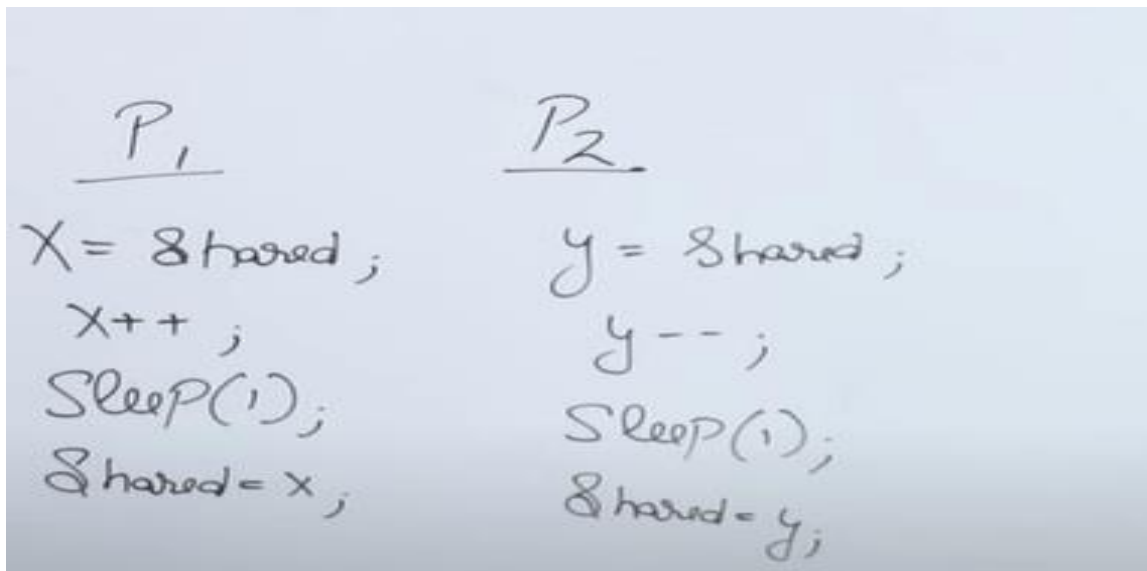 P1
X = Shared;
X++;
Sleep(1);
Shared = x;
P2
y = Shared;
y--;
Sleep(1);
Shared = y;